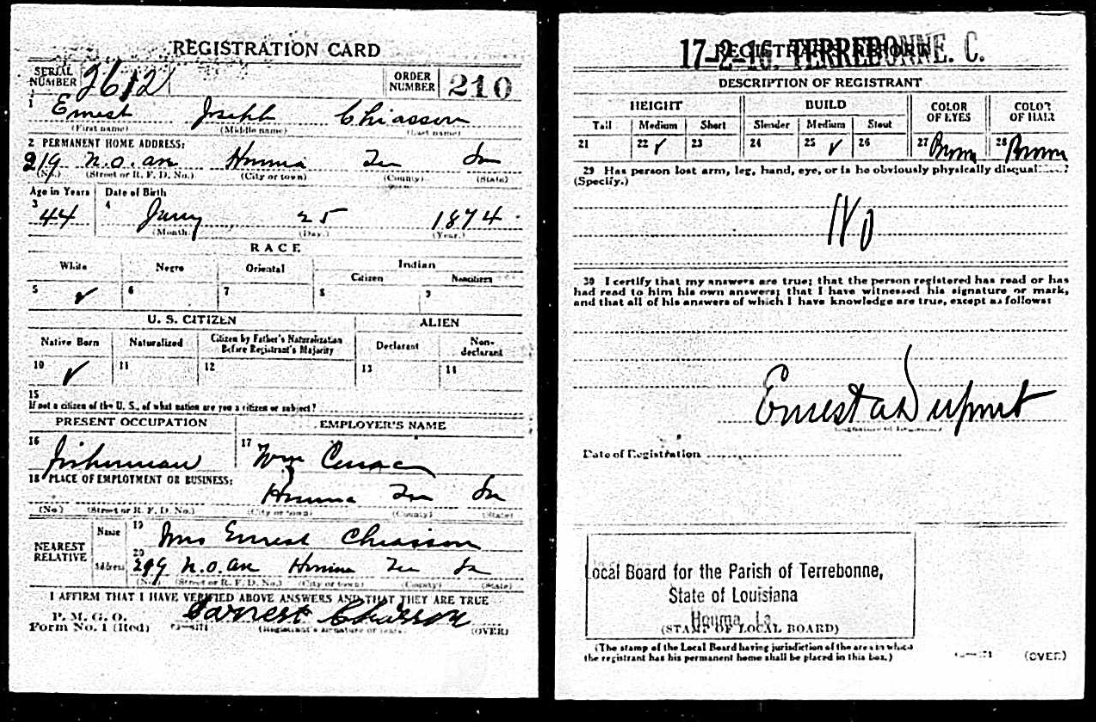 REGISTRATION CARD
SERIAL NUMBER 2612
ORDER NUMBER 210
1 Ernest Joseph Chiasson
(First name) (Middle name) (Last name)
2 PERMANENT HOME ADDRESS:
219 N.O. av Houma Ter La
(No.) (Street or R. F. D. No.) (City or town) (County) (State)
Age in Years Date of Birth
3 44 4 Jany 25 1874
(Month.) (Day.) (Year.)
RACE
White Negro Oriental Indian
Citizen Noncitizen
5 ✓ 6 7 8 9
U. S. CITIZEN ALIEN
Native Born Naturalized Citizen by Father's Naturalization Before Registrant's Majority Declarant Non-declarant
10 ✓ 11 12 13 14
15
If not a citizen of the U. S., of what nation are you a citizen or subject?
PRESENT OCCUPATION EMPLOYER'S NAME
16 Fisherman 17 Wm Cenac
18 PLACE OF EMPLOYMENT OR BUSINESS:
Houma Ter La
(No.) (Street or R. F. D. No.) (City or town) (County) (State)
NEAREST RELATIVE
Name 19 Mrs Ernest Chiasson
Address 20 219 N.O. av Houma Ter La
(No.) (Street or R. F. D. No.) (City or town) (County) (State)
I AFFIRM THAT I HAVE VERIFIED ABOVE ANSWERS AND THAT THEY ARE TRUE
P. M. G. O.
Form No. 1 (Red) Earnest Chiasson
(Registrant's signature or mark) (OVER)
REGISTRAR'S REPORT
17-2-16. TERREBONNE. C.
DESCRIPTION OF REGISTRANT
HEIGHT BUILD COLOR OF EYES COLOR OF HAIR
Tall Medium Short Slender Medium Stout
21 22 ✓ 23 24 25 ✓ 26 27 Brown 28 Brown
29 Has person lost arm, leg, hand, eye, or is he obviously physically disqual ?
(Specify.)
No
30 I certify that my answers are true; that the person registered has read or has
had read to him his own answers; that I have witnessed his signature or mark,
and that all of his answers of which I have knowledge are true, except as follows:
Ernest A Dupont
Date of Registration
Local Board for the Parish of Terrebonne,
State of Louisiana
Houma, La
(STAMP OF LOCAL BOARD)
(The stamp of the Local Board having jurisdiction of the area in which
the registrant has his permanent home shall be placed in this box.)
(OVER)